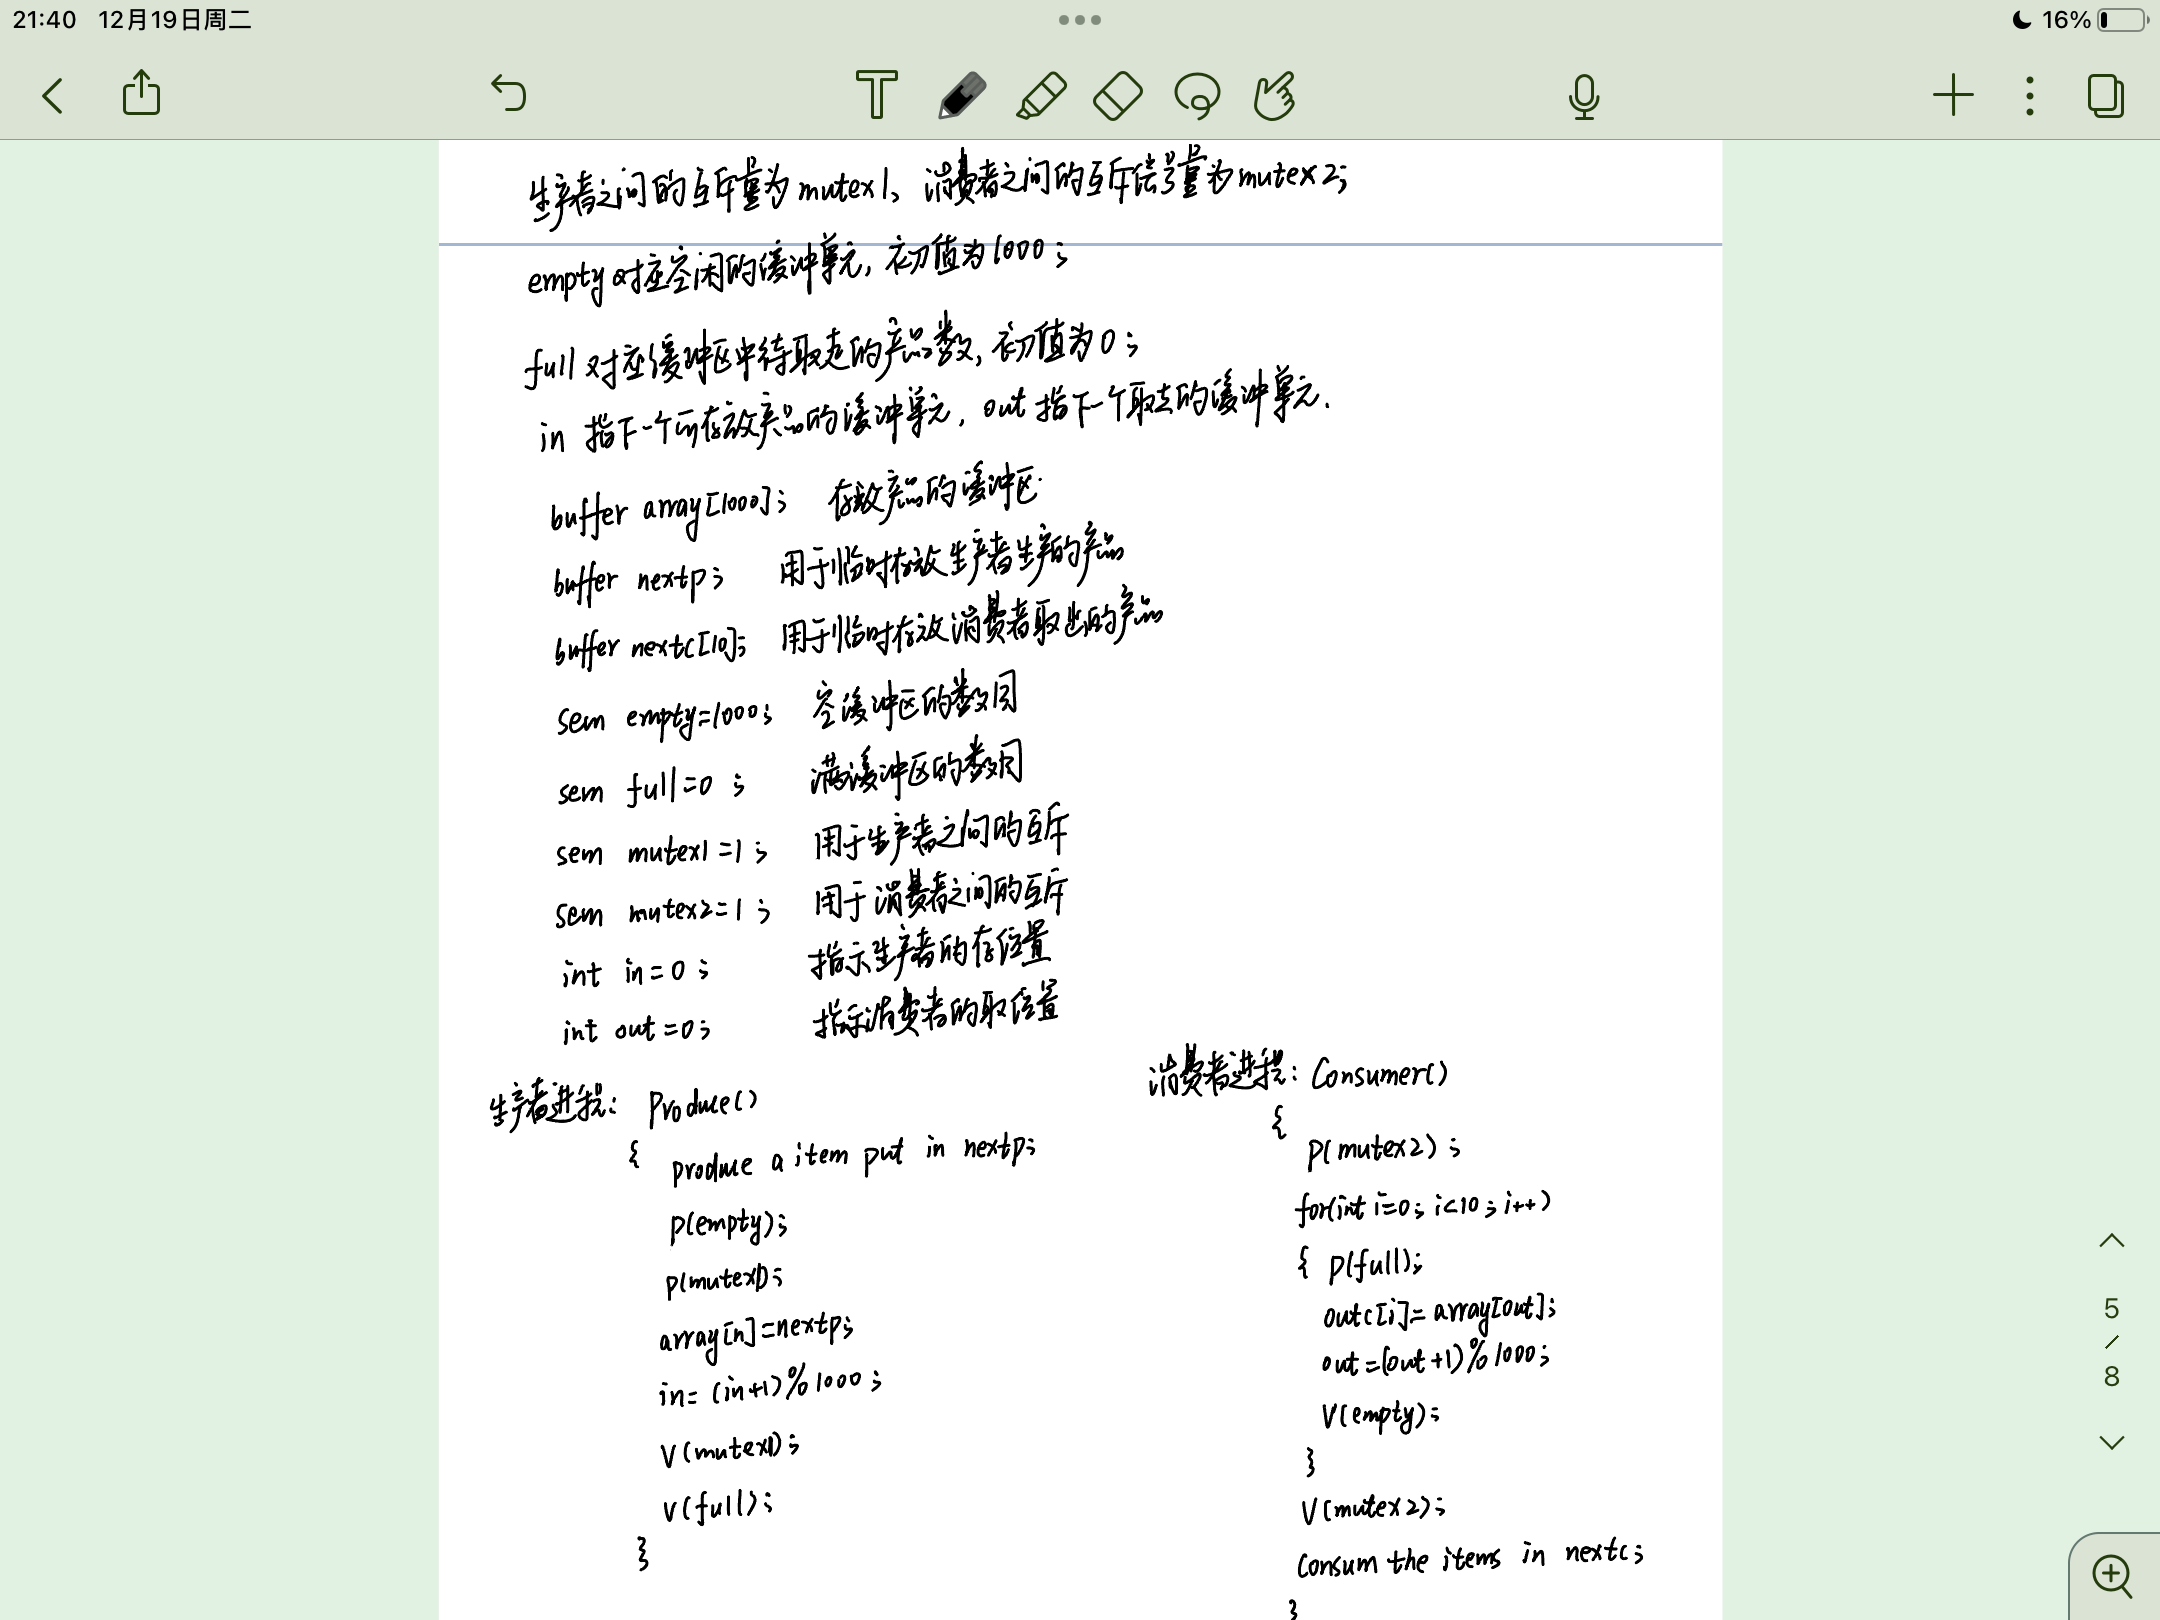 21:40 12月19日周二
16%
生产者之间的互斥量为mutex1、消费者之间的互斥信号量为mutex2;
empty对应空闲的缓冲单元,初值为1000;
full对应缓冲区中待取走的产品数,初值为0;
in 指下一个可存放产品的缓冲单元,out指下一个取走的缓冲单元.
buffer array[1000]; 存放产品的缓冲区.
buffer nextp; 用于临时存放生产者生产的产品
buffer nextc[10]; 用于临时存放消费者取出的产品
sem empty=1000; 空缓冲区的数目
sem full=0; 满缓冲区的数目
sem mutex1=1; 用于生产者之间的互斥
sem mutex2=1; 用于消费者之间的互斥
int in=0; 指示生产者的存位置
int out=0; 指示消费者的取位置
生产者进程: Produce()
{ produce a item put in nextp;
P(empty);
P(mutex1);
array[n]=nextp;
in=(in+1)%1000;
V(mutex1);
V(full);
}
消费者进程: Consumer()
{
P(mutex2);
for(int i=0; i<10; i++)
{ P(full);
outc[i]=array[out];
out=(out+1)%1000;
V(empty);
}
V(mutex2);
Consum the items in nextc;
}
5
/
8